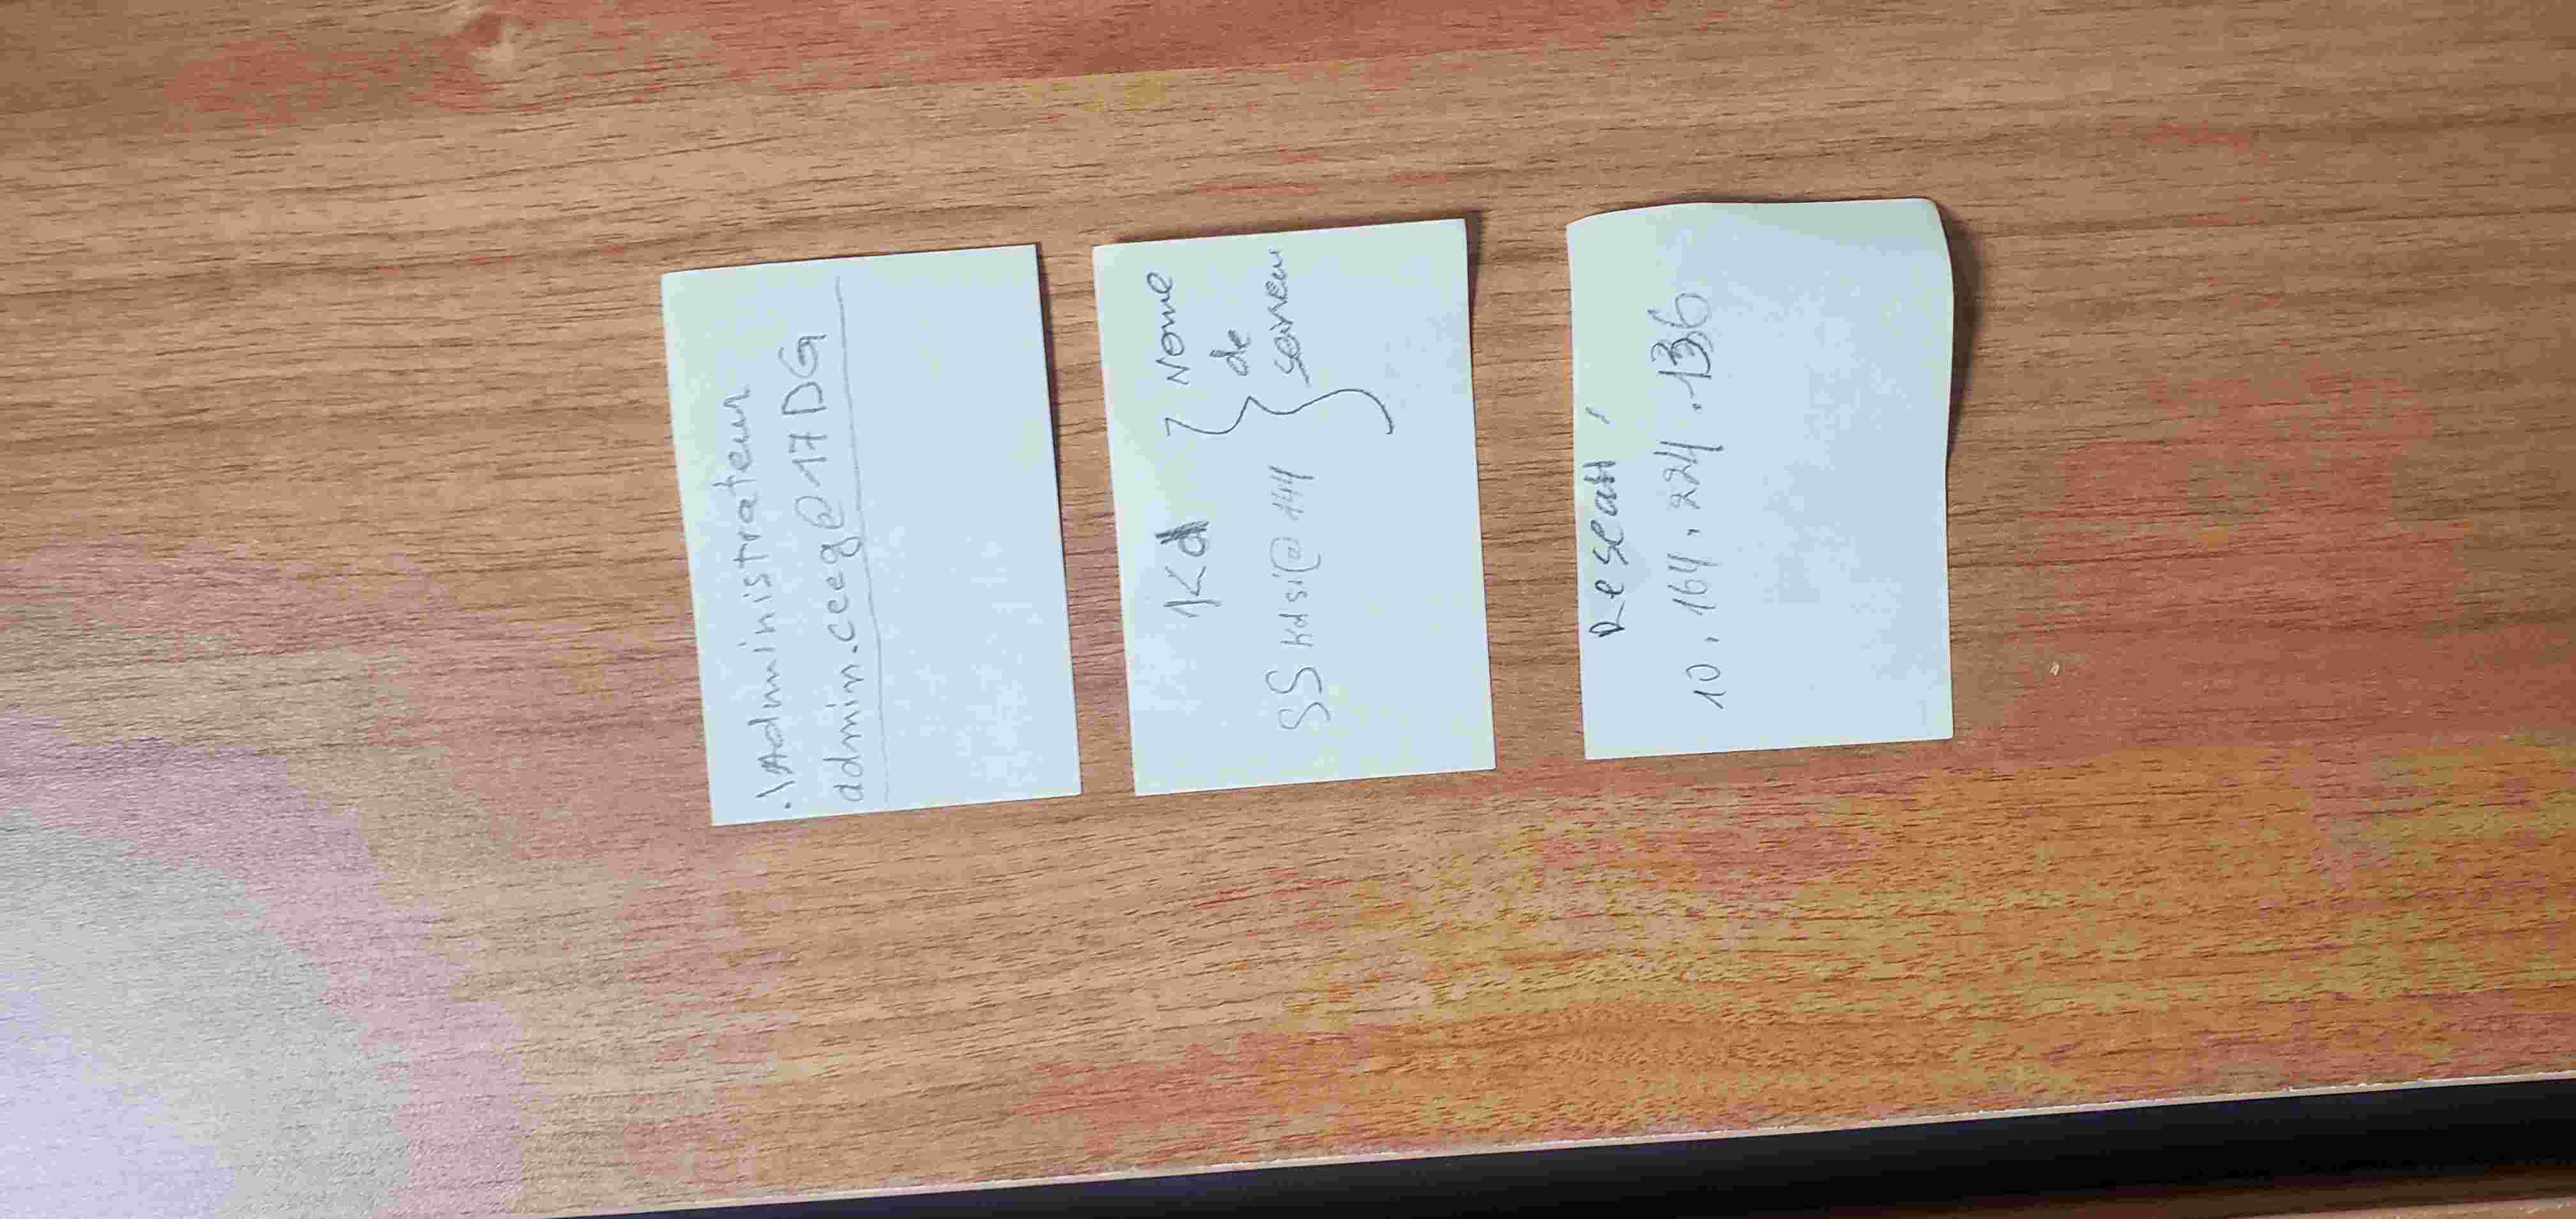 .\Administrateur
admin.cceg@17DG
Kd
SSkdsi@144
Nome
de
serveur
Reseau :
10.164.224.136